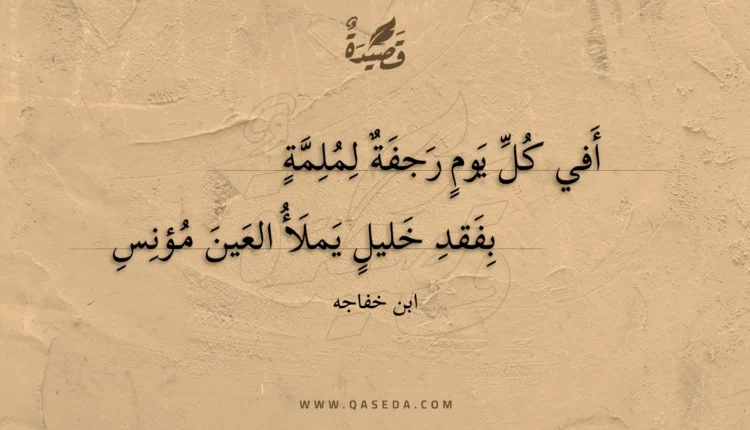 قَصِيدَةٌ
أَفي كُلِّ يَومٍ رَجفَةٌ لِمُلِمَّةٍ
بِفَقدِ خَليلٍ يَملَأُ العَينَ مُؤنِسِ
ابن خفاجه
WWW.QASEDA.COM